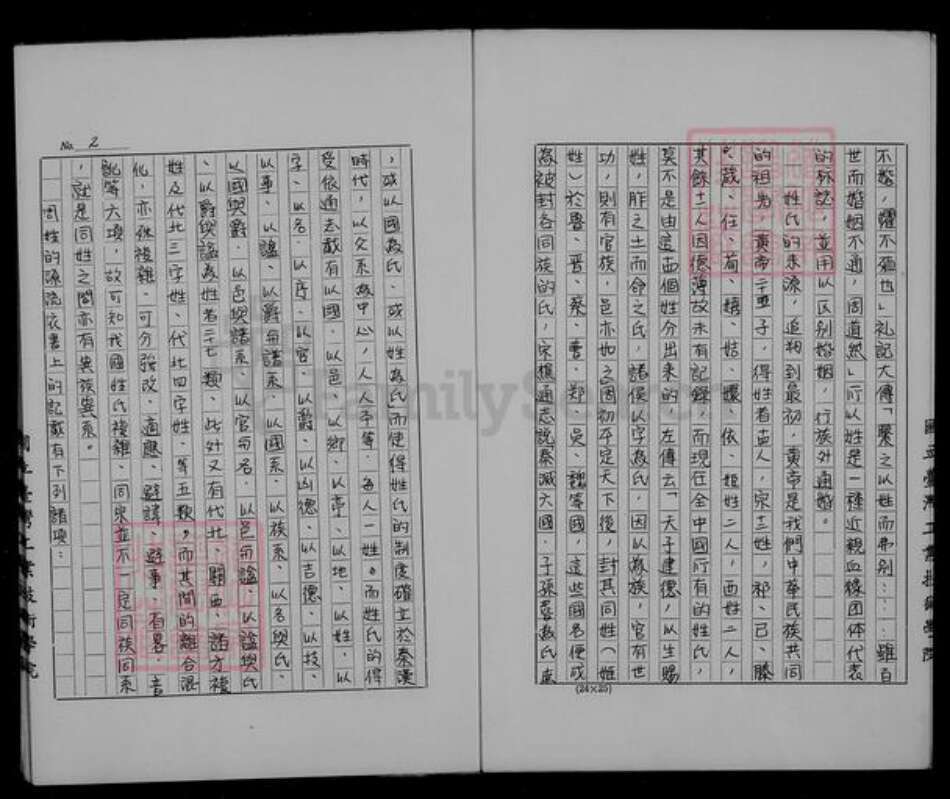 不婚,嬥不殛也」礼記大傳「繫之以姓而弗別⋯⋯雖百
世而婚姻不通,周道然」所以姓是一種近親血緣团体代表
的标誌,並用以区别婚姻,行族外通婚。
姓氏的来源,追朔到最初,黄帝是我們中華民族共同
的祖先,黄帝二十五子,得姓者十四人,宗十二姓,祁、己、滕
、葴、任、荀、嬉、姞、嬛、依、姬姓二人,酉姓二人,
其餘十一人因德薄故未有記錄,而現在全中國所有的姓氏,
莫不是由這十四個姓分出来的,左傳云「天子建德,以生賜
姓,胙之土而命之氏,諸侯以字為氏,因以為族,官有世
功,則有官族,邑亦如之周初平定天下後,封其同姓(姬
姓)於魯、晋、蔡、曹、郑、吳、魏等國,這些國名便成
為被封各同族的氏,宋樵通志説秦滅六國,子孫
(24×25)
No. 2
,或以國為氏、或以姓為氏而使得姓氏的制度確立於秦漢
時代,以父系為中心,人人平等,每人一姓。而姓氏的得
受依通志載有以國、以邑、以鄉、以亭、以地、以姓、以
字、以名、以氏、以官、以爵、以凶德、以吉德、以技、
以事、以謚、以爵与諸系、以國系、以族系、以名與氏、
以國與爵、以邑與諸系、以官与名、以邑与謚、以謚與氏
、以爵與謚為姓者二十七類、此外又有代北、關西、諸方複
姓及代北三字姓、代北四字姓、等五類,而其間的離合混
化,亦休複雜、可分強改、適應、避諱、避事、省畧、音
訛等六項,故可知我國姓氏複雜、同宗並不一定同族同系
,就是同姓之間亦有異族異系。
同姓的源流在書上的記載有下列諸項:
FamilySearch